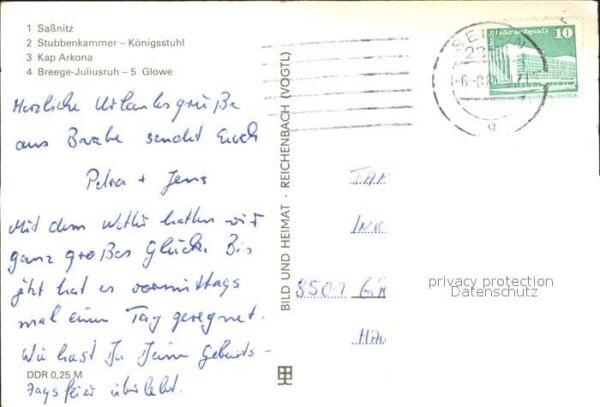 1 Saßnitz
2 Stubbenkammer – Königsstuhl
3 Kap Arkona
4 Breege-Juliusruh – 5 Glowe
Herzliche Urlaubsgrüße
aus Baabe sendet Euch
Petra + Jens
Mit dem Wetter hatten wir
ganz großes Glück. Bis
jetzt hat es vormittags
mal einen Tag geregnet.
Wie hast Du Deine Geburts-
tagsfeier überlebt.
DDR 0,25 M
BILD UND HEIMAT · REICHENBACH (VOGTL)
10
Palast der Republik
8501
privacy protection
Datenschutz